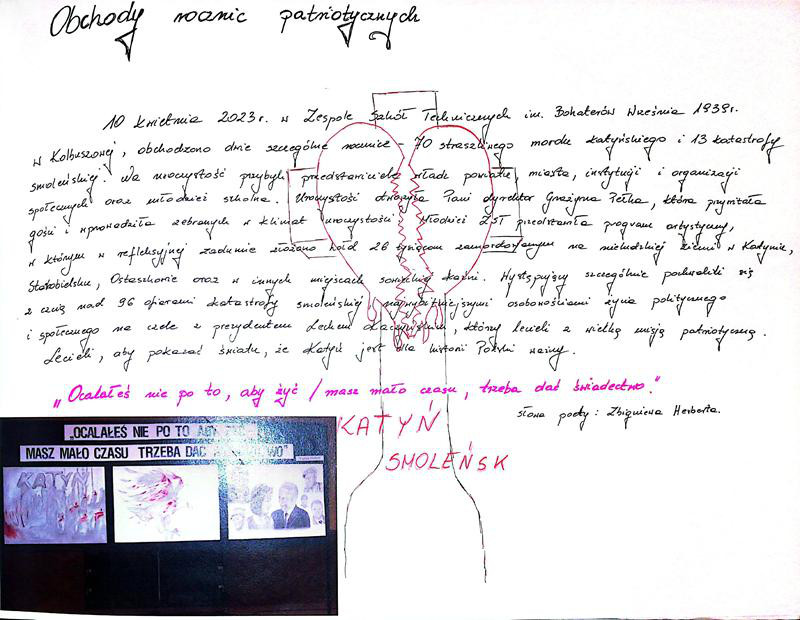 Obchody rocznic patriotycznych
10 kwietnia 2023r. w Zespole Szkół Technicznych im. Bohaterów Września 1939r.
w Kolbuszowej, obchodzono dwie szczególne rocznice – 70 strasznego mordu katyńskiego i 13 katastrofy
smoleńskiej. Na uroczystość przybyli przedstawiciele władz powiatu, miasta, instytucji i organizacji
społecznych oraz młodzież szkolna. Uroczystość otworzyła Pani dyrektor Grażyna Pełka, która przywitała
gości i wprowadziła zebranych w klimat uroczystości. Młodzież ZST przedstawiła program artystyczny,
w którym w refleksyjnej zadumie złożono hołd 26 tysiącom zamordowanym na nieludzkiej ziemi w Katyniu,
Starobielsku, Ostaszkowie oraz w innych miejscach sowieckiej kaźni. Występujący szczególnie pochylili się
z czcią nad 96 ofiarami katastrofy smoleńskiej najwybitniejszymi osobowościami życia politycznego
i społecznego na czele z prezydentem Lechem Kaczyńskim, którzy lecieli z wielką misją patriotyczną.
Lecieli, aby pokazać światu, że Katyń jest dla historii Polski ważny.
„Ocalałeś nie po to, aby żyć / masz mało czasu, trzeba dać świadectwo."
słowa poety: Zbigniewa Herberta.
KATYŃ
SMOLEŃSK
„OCALAŁEŚ NIE PO TO ABY
MASZ MAŁO CZASU TRZEBA DAĆ
KATYŃ